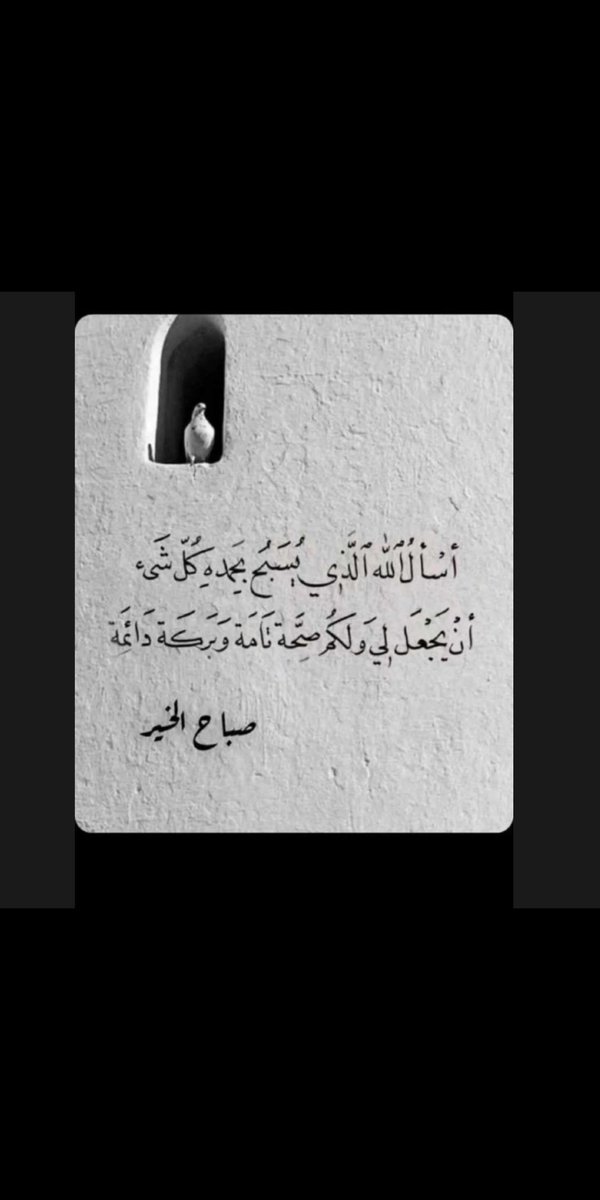 أَسْأَلُ اللّٰه ٱلَّذِي يُسَبِّحُ بِحَمْدِهِ كُلّ شَيْء
أَنْ يَجْعَل لِي وَلَكُم صِحَّة تَامَة وَبَرَكَة دَائِمَة
صباح الخير